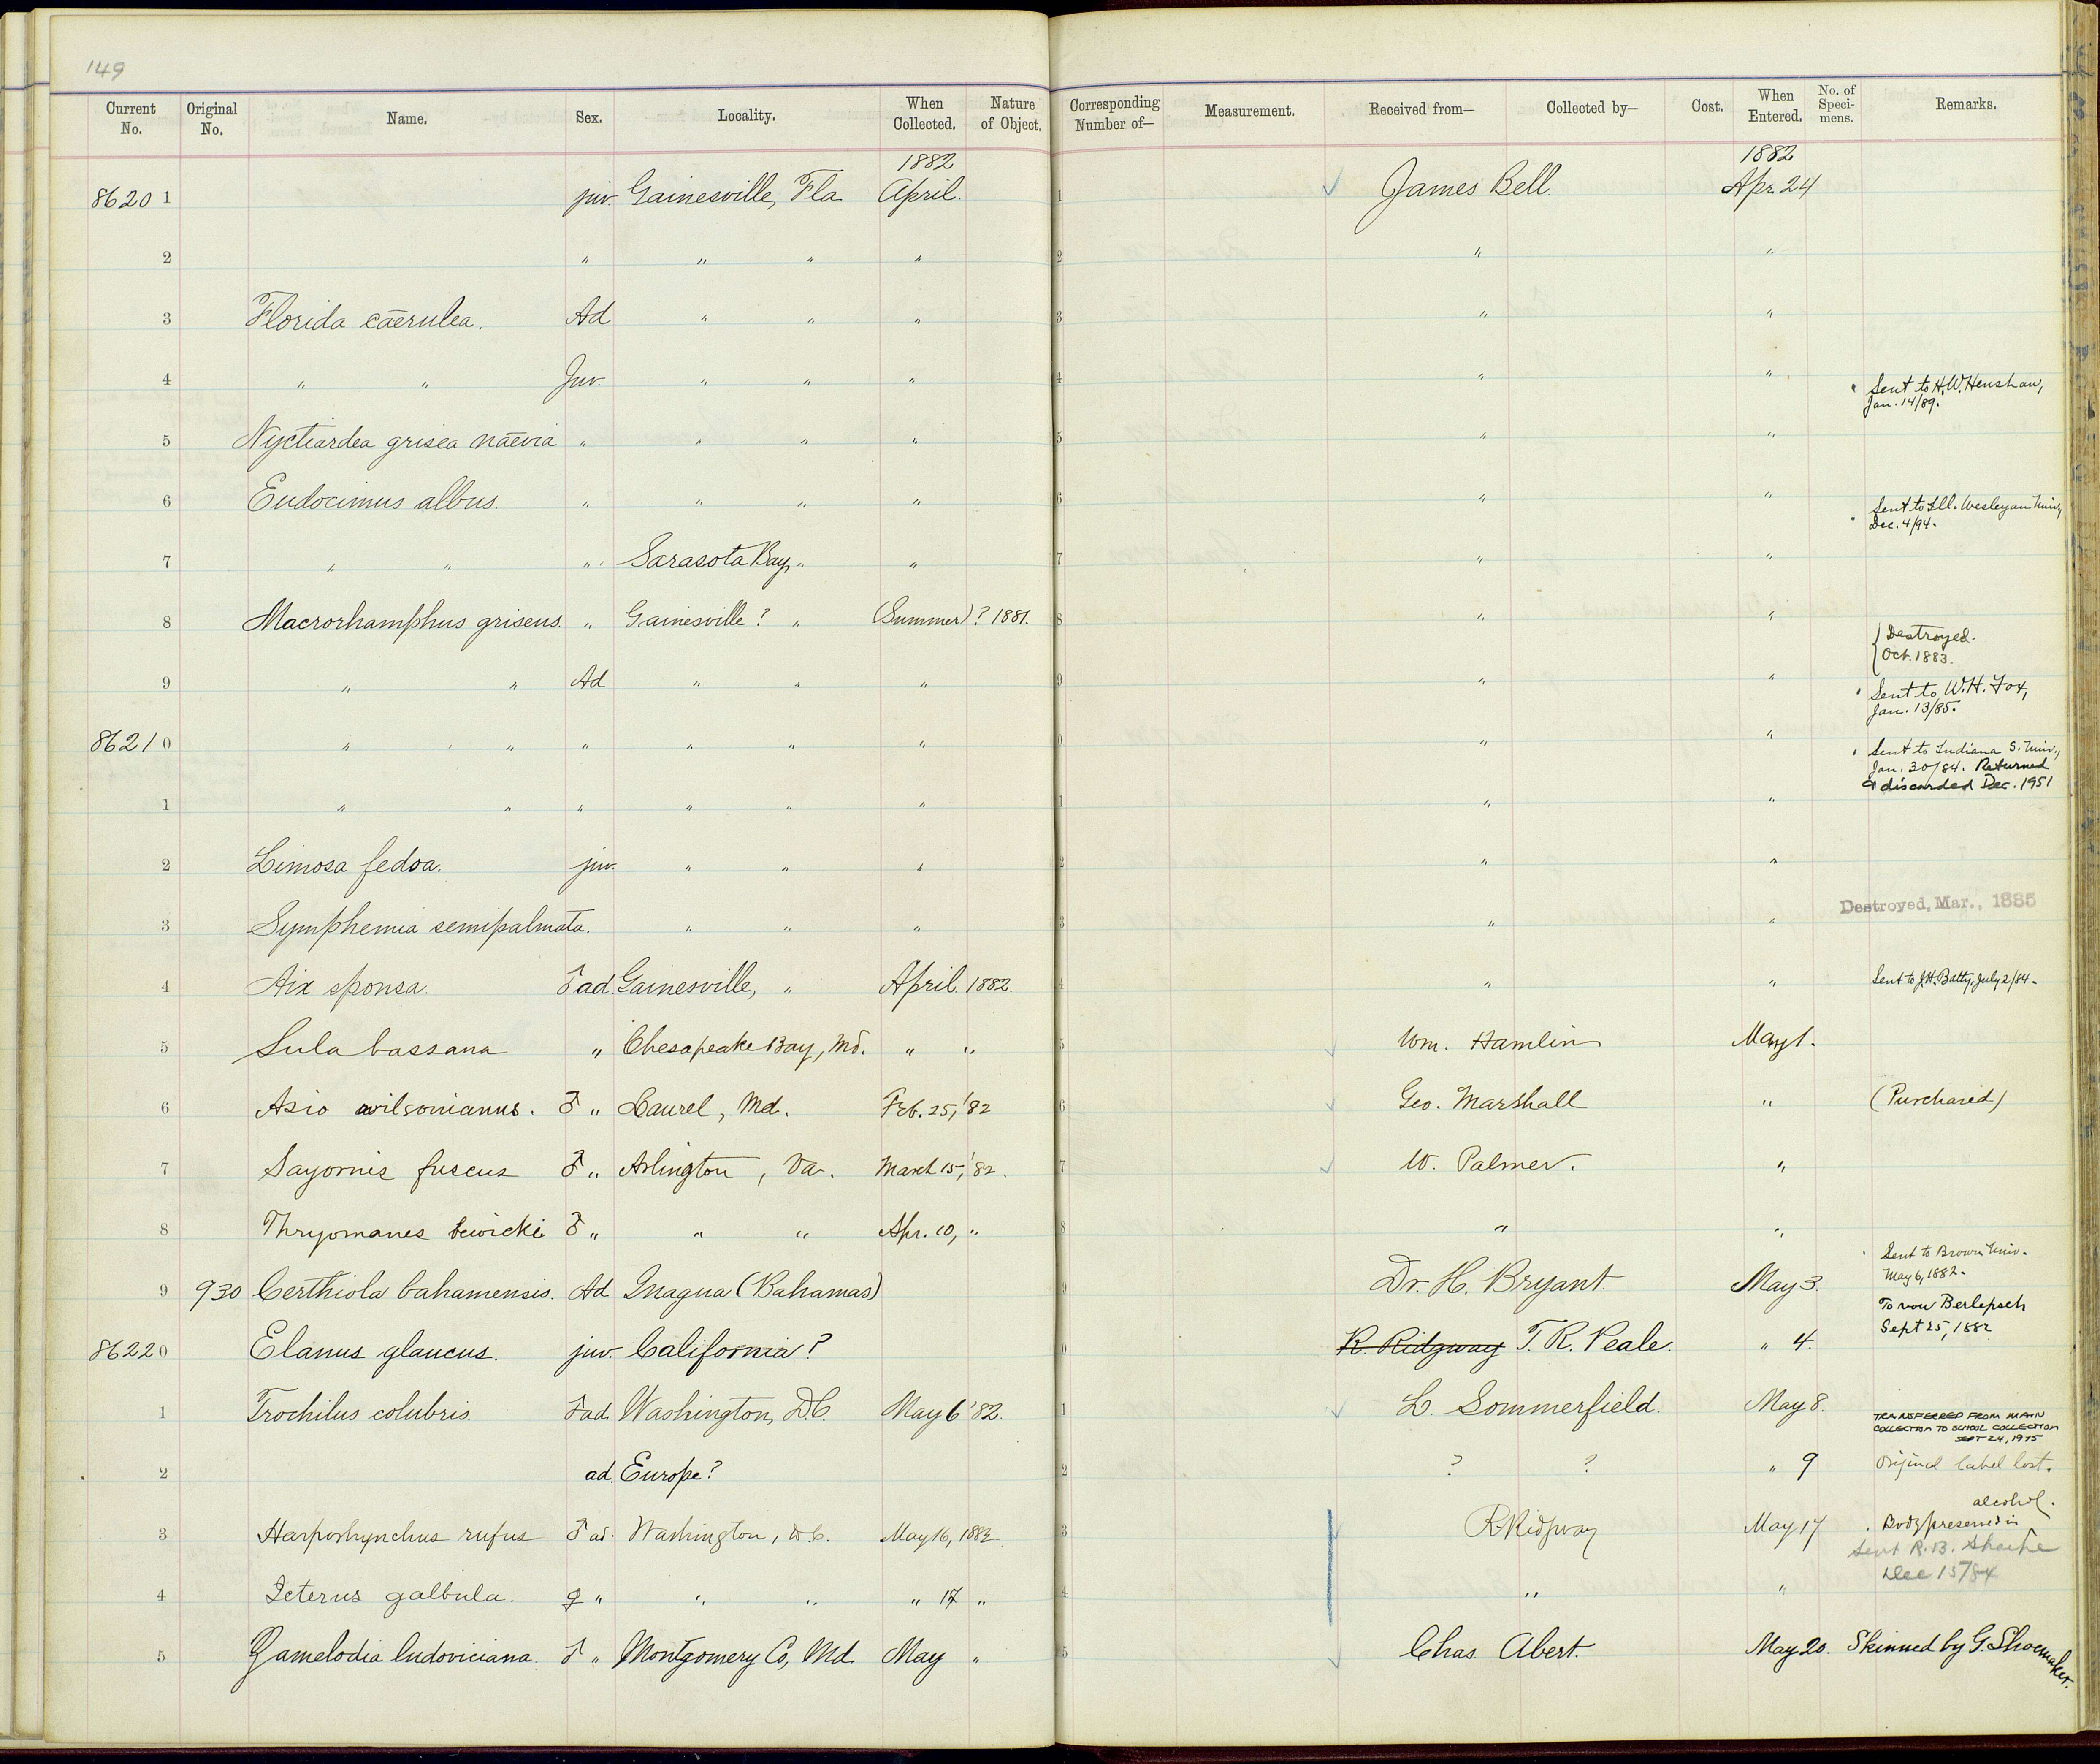 149
Current No. Original No. Name. Sex. Locality. When Collected. Nature of Object. Corresponding Number of— Measurement. Received from— Collected by— Cost. When Entered. No. of Speci-mens. Remarks.
1882 1882
86201 juv. Gainesville, Fla April. 1 James Bell. Apr. 24
2 " " " " 2 " "
3 Florida cærulea. Ad " " " 3 " "
4 " " Juv. " " " 4 " " Sent to H.W. Henshaw, Jan. 14/89.
5 Nyctiardea grisea nævia " " " " 5 " "
6 Eudocimus albus. " " " " 6 " " Sent to Ill. Wesleyan Univ, Dec. 4/94.
7 " " " Sarasota Bay, " " 7 " "
8 Macrorhamphus griseus. " Gainesville? " (Summer)? 1881. 8 " " { Destroyed. Oct. 1883.
9 " " Ad " " " 9 " " Sent to W.H. Fox, Jan. 13/85.
86210 " " " " " " 0 " " Sent to Indiana S. Univ., Jan. 30/84. Returned & discarded Dec. 1951
1 " " " " " " 1 " "
2 Limosa fedoa. juv. " " " 2 " "
3 Symphemia semipalmata. " " " 3 " " Destroyed, Mar., 1885
4 Aix sponsa. ♂ ad. Gainesville, " April 1882. 4 " " Sent to J.H. Batty, July 2/84.
5 Sula bassana " Chesapeake Bay, Md. " " 5 Wm. Hamlin May 1.
6 Asio wilsonianus. ♂ " Laurel, Md. Feb. 25, '82 6 Geo. Marshall " (Purchased)
7 Sayornis fuscus ♂ " Arlington, Va. March 15, '82. 7 W. Palmer. "
8 Thryomanes bewicki ♂ " " " Apr. 10, " 8 " "
9 930 Certhiola bahamensis. Ad Inagua (Bahamas) 9 Dr. H. Bryant. May 3. Sent to Brown Univ. May 6, 1882.
To von Berlepsch Sept 25, 1882
86220 Elanus glaucus. juv. California? 0 R. Ridgway T. R. Peale. " 4.
1 Trochilus colubris. ♂ ad. Washington, D.C. May 6 '82. 1 L. Sommerfield. May 8.
TRANSFERRED FROM MAIN COLLECTION TO SCHOOL COLLECTION SEPT 24, 1975
2 ad. Europe? 2 ? ? " 9 Original label lost.
3 Harporhynchus rufus ♂ ad. Washington, D.C. May 16, 1882 3 R Ridgway May 17 Body preserved in alcohol.
Sent R.B. Sharpe Dec 15/84
4 Icterus galbula. ♀ " " " " 17 " 4 " "
5 Zamelodia ludoviciana. ♂ " Montgomery Co, Md. May " 5 Chas. Abert. May 20. Skinned by G. Shoemaker.